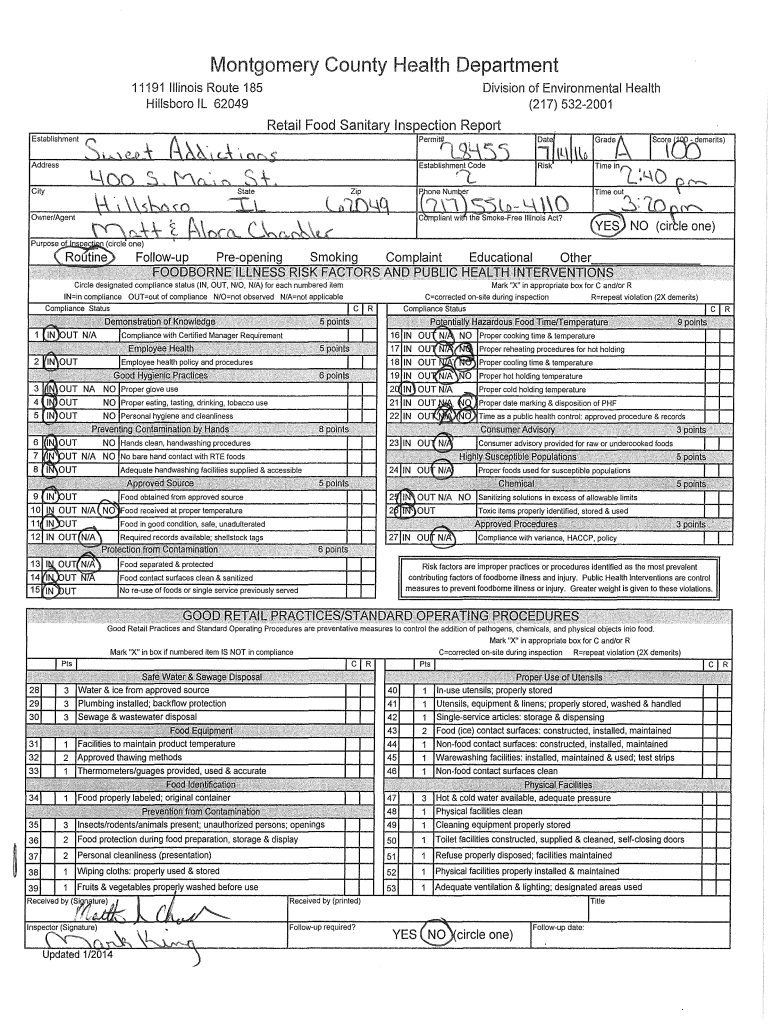 Montgomery County Health Department
11191 Illinois Route 185 Division of Environmental Health
Hillsboro IL 62049 (217) 532-2001
Retail Food Sanitary Inspection Report
Establishment Sweet Addictions Permit# 78455 Date 7/14/16 Grade A Score (100 - demerits) 100
Address 400 S. Main St. Establishment Code 2 Risk Time in 2:40 pm
City Hillsboro State IL Zip 62049 Phone Number (217) 556-4110 Time out 3:20pm
Owner/Agent Matt & Alora Chandler Compliant with the Smoke-Free Illinois Act? YES NO (circle one)
Purpose of Inspection (circle one)
Routine Follow-up Pre-opening Smoking Complaint Educational Other
FOODBORNE ILLNESS RISK FACTORS AND PUBLIC HEALTH INTERVENTIONS
Circle designated compliance status (IN, OUT, N/O, N/A) for each numbered item Mark "X" in appropriate box for C and/or R
IN=in compliance OUT=out of compliance N/O=not observed N/A=not applicable C=corrected on-site during inspection R=repeat violation (2X demerits)
Compliance Status C R
Demonstration of Knowledge 5 points
1 IN OUT N/A Compliance with Certified Manager Requirement
Employee Health 5 points
2 IN OUT Employee health policy and procedures
Good Hygienic Practices 6 points
3 IN OUT NA NO Proper glove use
4 IN OUT NO Proper eating, tasting, drinking, tobacco use
5 IN OUT NO Personal hygiene and cleanliness
Preventing Contamination by Hands 8 points
6 IN OUT NO Hands clean, handwashing procedures
7 IN OUT N/A NO No bare hand contact with RTE foods
8 IN OUT Adequate handwashing facilities supplied & accessible
Approved Source 5 points
9 IN OUT Food obtained from approved source
10 IN OUT N/A NO Food received at proper temperature
11 IN OUT Food in good condition, safe, unadulterated
12 IN OUT N/A Required records available; shellstock tags
Protection from Contamination 6 points
13 IN OUT N/A Food separated & protected
14 IN OUT N/A Food contact surfaces clean & sanitized
15 IN OUT No re-use of foods or single service previously served
Compliance Status C R
Potentially Hazardous Food Time/Temperature 9 points
16 IN OUT N/A NO Proper cooking time & temperature
17 IN OUT N/A NO Proper reheating procedures for hot holding
18 IN OUT N/A NO Proper cooling time & temperature
19 IN OUT N/A NO Proper hot holding temperature
20 IN OUT N/A Proper cold holding temperature
21 IN OUT N/A NO Proper date marking & disposition of PHF
22 IN OUT N/A NO Time as a public health control: approved procedure & records
Consumer Advisory 3 points
23 IN OUT N/A Consumer advisory provided for raw or undercooked foods
Highly Susceptible Populations 5 points
24 IN OUT N/A Proper foods used for susceptible populations
Chemical 5 points
25 IN OUT N/A NO Sanitizing solutions in excess of allowable limits
26 IN OUT Toxic items properly identified, stored & used
Approved Procedures 3 points
27 IN OUT N/A Compliance with variance, HACCP, policy
Risk factors are improper practices or procedures identified as the most prevalent
contributing factors of foodborne illness and injury. Public Health Interventions are control
measures to prevent foodborne illness or injury. Greater weight is given to these violations.
GOOD RETAIL PRACTICES/STANDARD OPERATING PROCEDURES
Good Retail Practices and Standard Operating Procedures are preventative measures to control the addition of pathogens, chemicals, and physical objects into food.
Mark "X" in appropriate box for C and/or R
Mark "X" in box if numbered item IS NOT in compliance C=corrected on-site during inspection R=repeat violation (2X demerits)
Pts C R
Safe Water & Sewage Disposal
28 3 Water & ice from approved source
29 3 Plumbing installed; backflow protection
30 3 Sewage & wastewater disposal
Food Equipment
31 1 Facilities to maintain product temperature
32 2 Approved thawing methods
33 1 Thermometers/guages provided, used & accurate
Food Identification
34 1 Food properly labeled; original container
Prevention from Contamination
35 3 Insects/rodents/animals present; unauthorized persons; openings
36 2 Food protection during food preparation, storage & display
37 2 Personal cleanliness (presentation)
38 1 Wiping cloths: properly used & stored
39 1 Fruits & vegetables properly washed before use
Pts C R
Proper Use of Utensils
40 1 In-use utensils; properly stored
41 1 Utensils, equipment & linens; properly stored, washed & handled
42 1 Single-service articles: storage & dispensing
43 2 Food (ice) contact surfaces: constructed, installed, maintained
44 1 Non-food contact surfaces: constructed, installed, maintained
45 1 Warewashing facilities: installed, maintained & used; test strips
46 1 Non-food contact surfaces clean
Physical Facilities
47 3 Hot & cold water available, adequate pressure
48 1 Physical facilities clean
49 1 Cleaning equipment properly stored
50 1 Toilet facilities constructed, supplied & cleaned, self-closing doors
51 1 Refuse properly disposed; facilities maintained
52 1 Physical facilities properly installed & maintained
53 1 Adequate ventilation & lighting; designated areas used
Received by (Signature) Received by (printed) Title
Inspector (Signature) Mark King Follow-up required? YES NO (circle one) Follow-up date:
Updated 1/2014